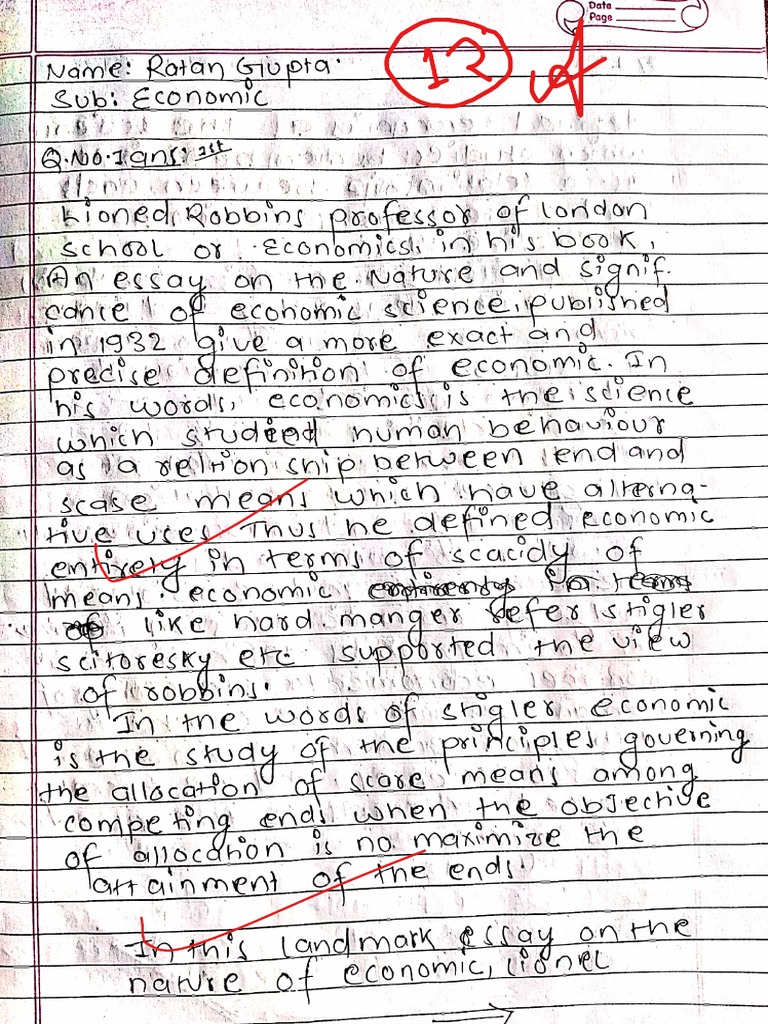 Date
Page
12
Name: Ratan Gupta.
Sub: Economic
Q.No.1ans: 1st
Lioned Robbins professor of london
school or Economics in his book,
An essay on the Nature and signif-
cance of economic science, published
in 1932 give a more exact and
precise definition of economic. In
his words, economics is the science
which studied human behaviour
as a reltion ship between end and
scase means which have alterna-
tive uses Thus he defined economic
entirety in terms of scacidy of
means. economic
like hard manger refer stigler
scitoresky etc supported the view
of robbins.
In the words of stigler economic
is the study of the principles governing
the allocation of scare means among
competing ends when the objective
of allocation is no maximize the
attainment of the ends.
In this landmark essay on the
nature of economic, lionel